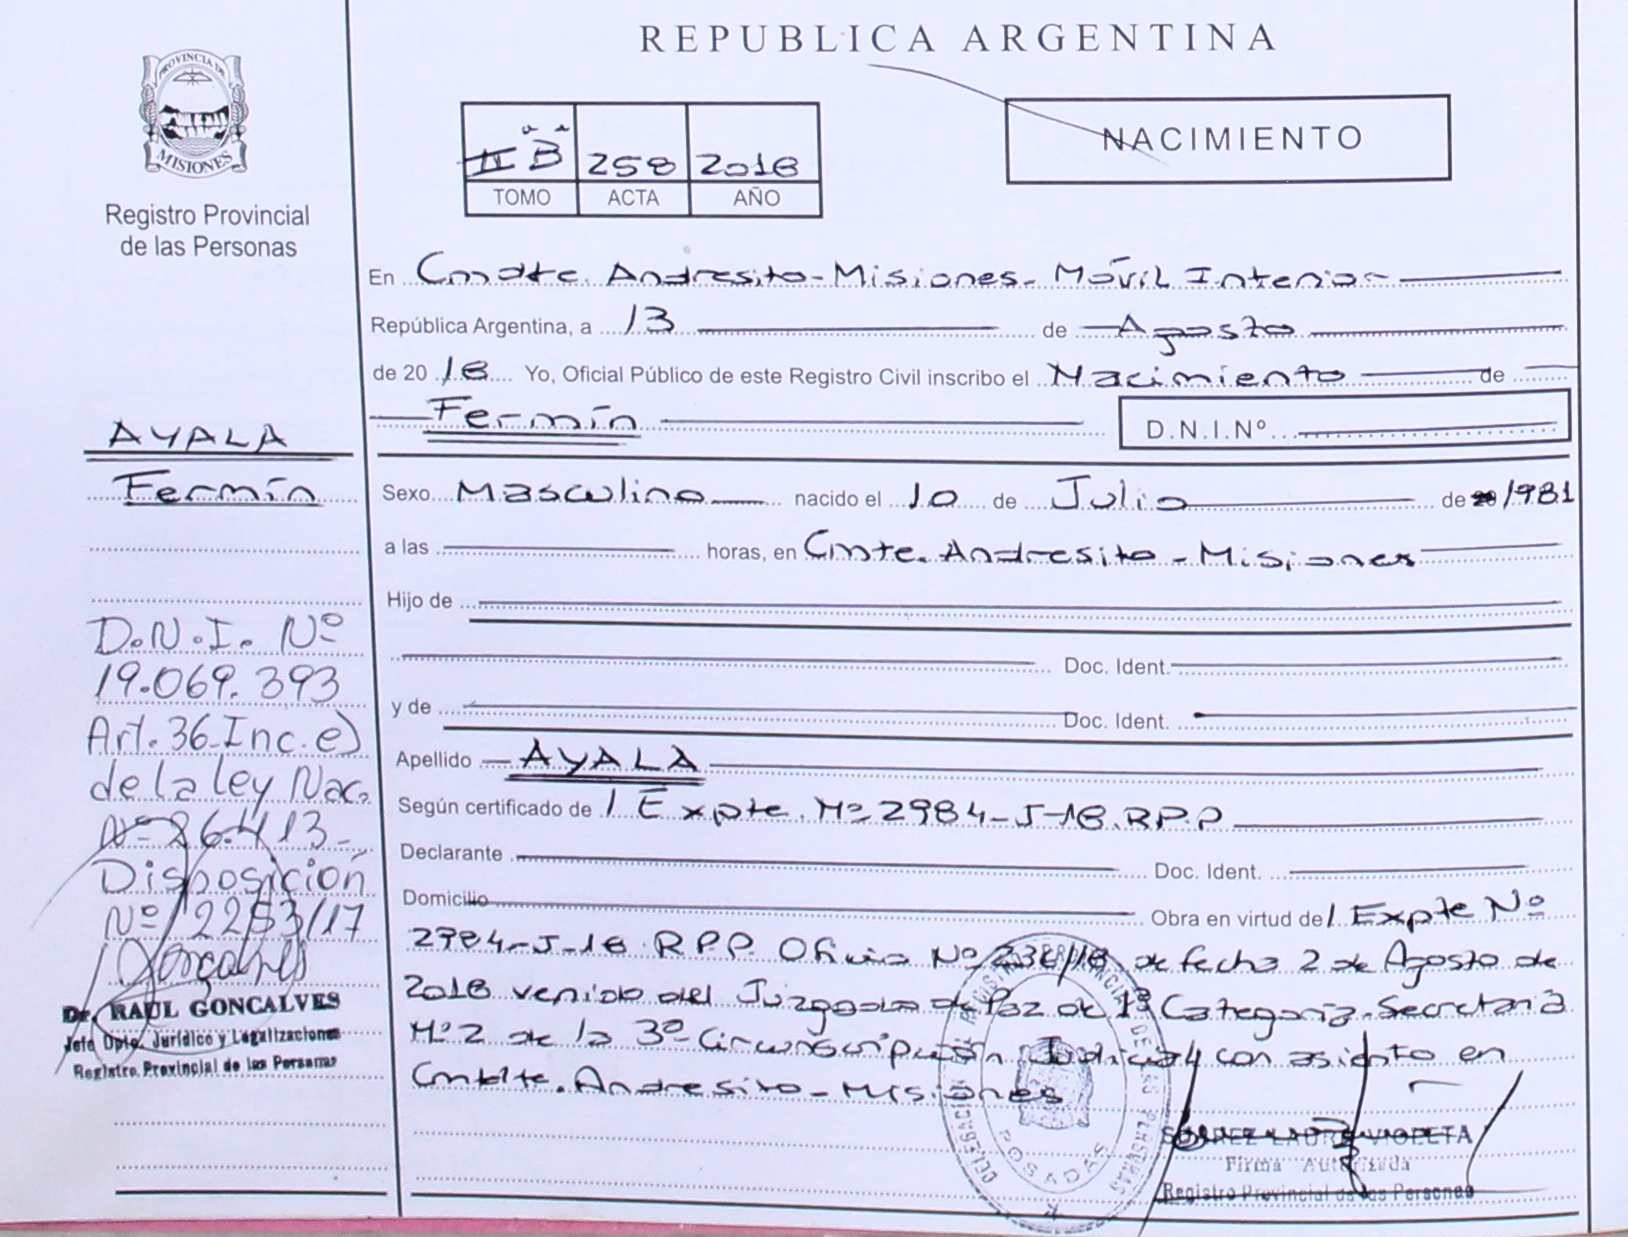 REPUBLICA ARGENTINA
PROVINCIA DE
MISIONES
Registro Provincial
de las Personas
II B 258 2018
TOMO ACTA AÑO
NACIMIENTO
En Cmdte. Andresito - Misiones - Móvil Interior
República Argentina, a 13 de Agosto
de 20 18 Yo, Oficial Público de este Registro Civil inscribo el Nacimiento de
Fermín D.N.I.Nº
Sexo Masculino nacido el 10 de Julio de 1981
a las horas, en Cmte. Andresito - Misiones
Hijo de
Doc. Ident.
y de Doc. Ident.
Apellido AYALA
Según certificado de / Expte. Nº 2984-J-18.R.P.P
Declarante Doc. Ident.
Domicilio Obra en virtud de / Expte Nº
2984-J-18 R.P.P. Oficio Nº de fecha 2 de Agosto de
2018 venido del Juzgado de Paz de 1ª Categoría - Secretaria
Nº 2 de la 3º Circunscripción Judicial con asiento en
Cmdte. Andresito - Misiones
AYALA
Fermín
D.N.I. Nº
19.069.393
Art. 36 Inc. e)
de la ley Nac.
Nº 26.413-
Disposición
Nº 2253/17
Dr. RAUL GONCALVES
Jefe Dpto. Jurídico y Legalizaciones
Registro Provincial de las Personas
POSADAS
VIOLETA
Firma Autorizada
Registro Provincial de las Personas